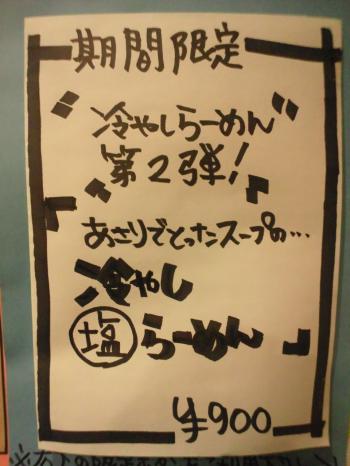 期間限定
"冷やしらーめん"
第2弾!
「あさりでとったスープの…
冷やし
塩らーめん」
¥900